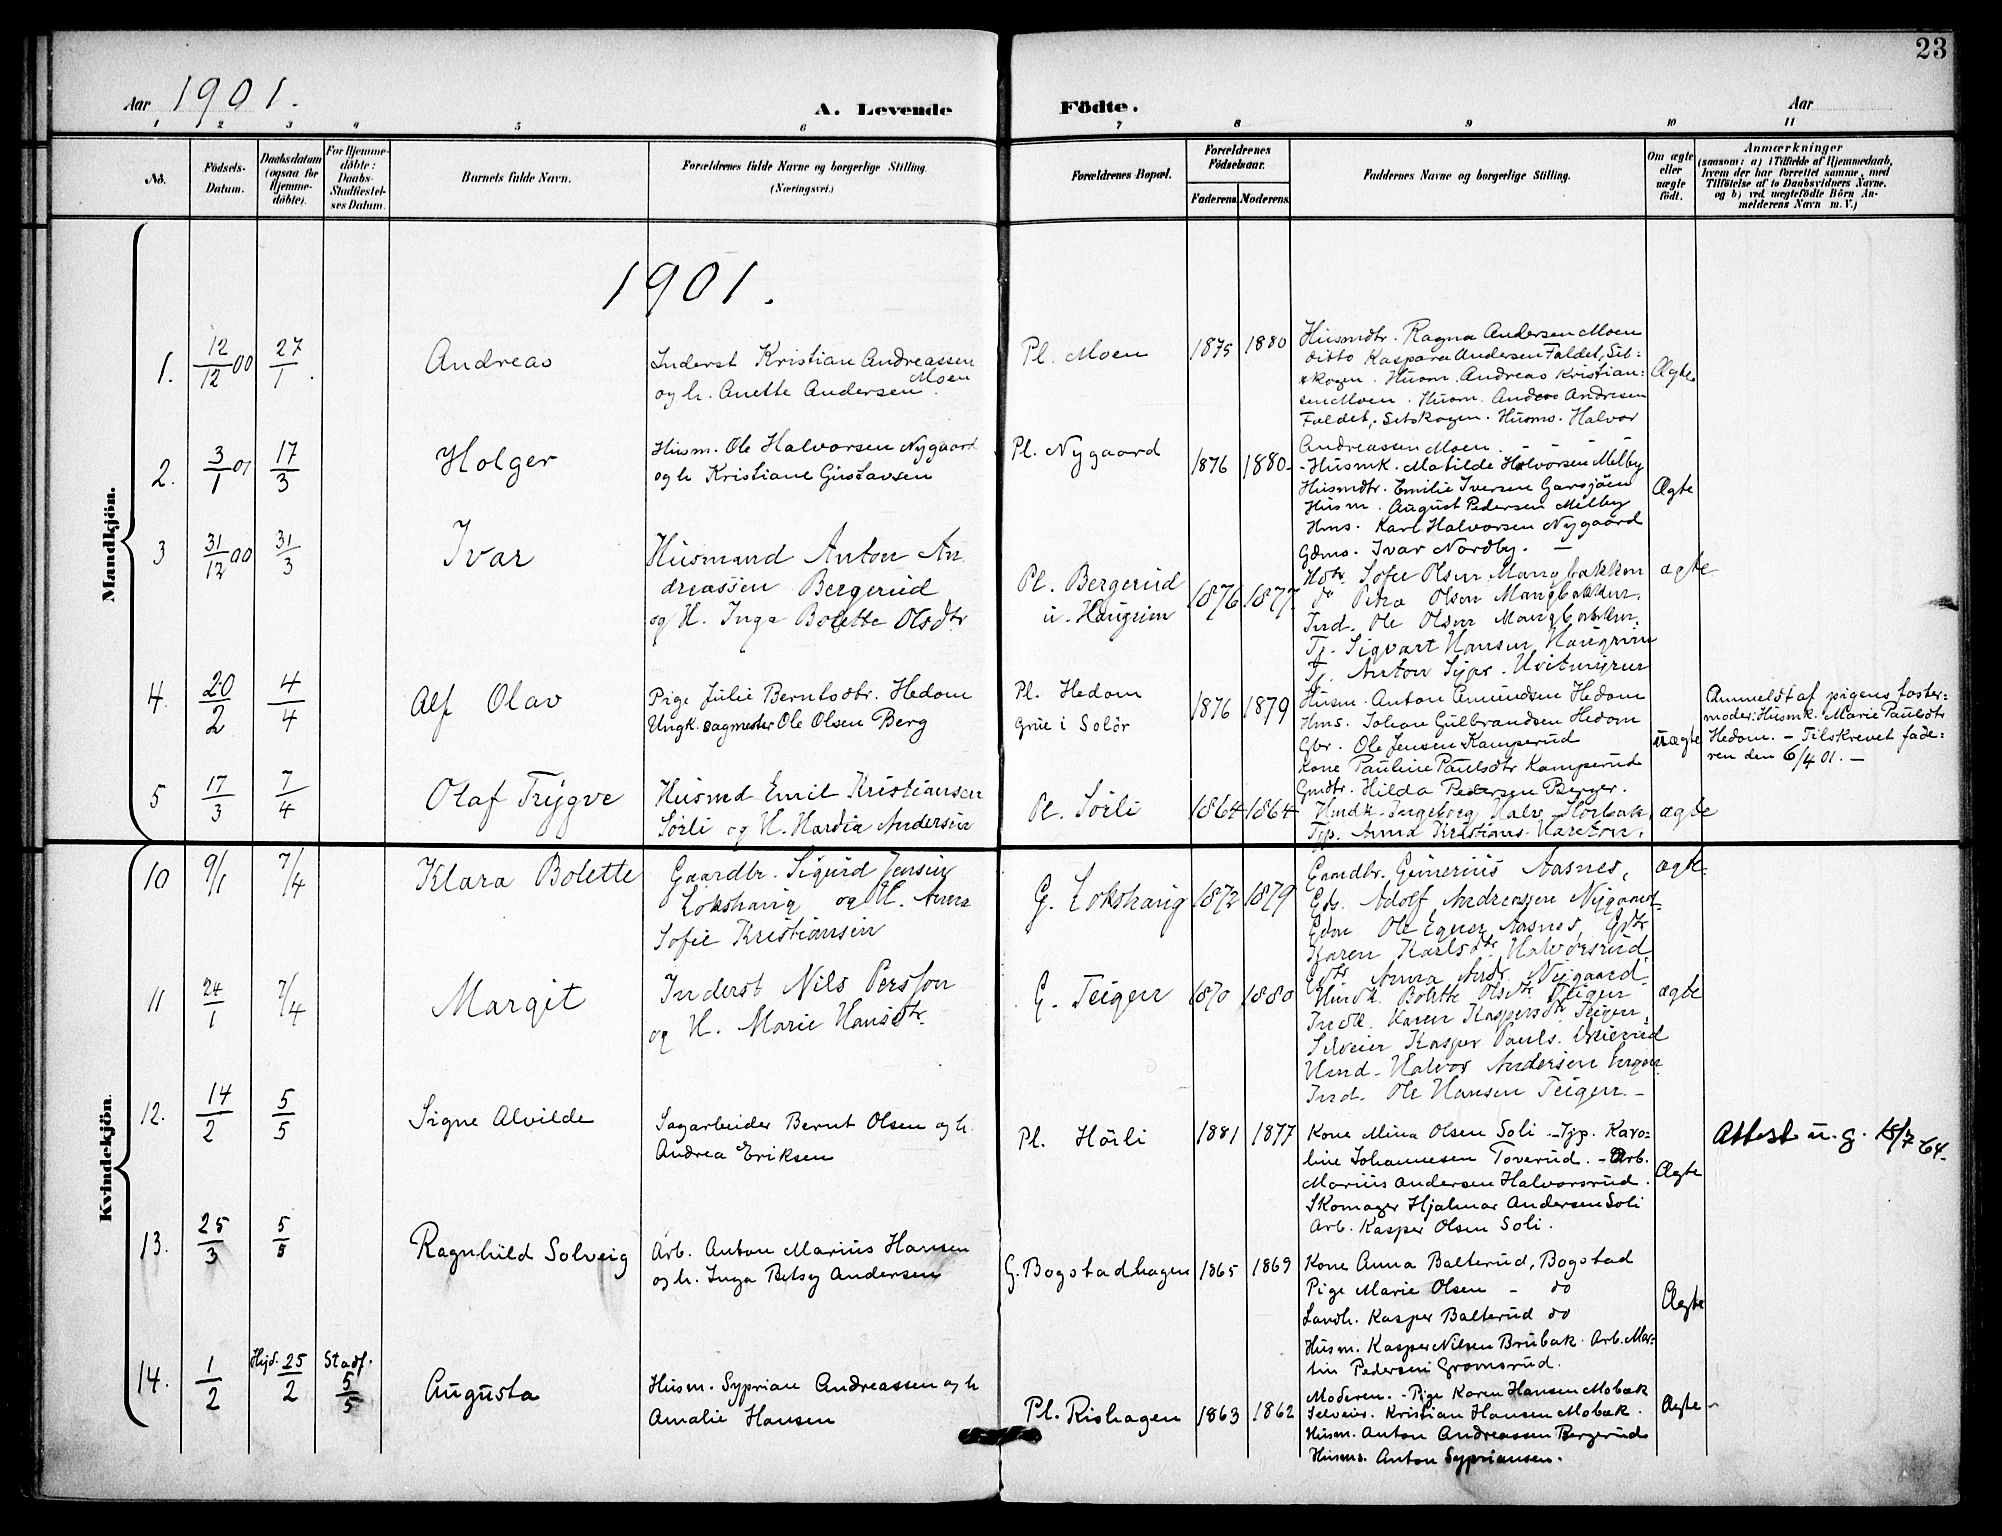 23
Aar 1901.
A. Levende Födte.
Aar
1 2 3 4 5 6 7 8 9 10 11
No.
Födsels-
Datum.
Daabsdatum
(ogsaa for
Hjemme-
döbte).
For Hjemme-
döbte:
Daabs-
Stadfæstel-
ses Datum.
Barnets fulde Navn.
Forældrenes fulde Navne og borgerlige Stilling
(Næringsvei.)
Forældrenes Bopæl.
Forældrenes
Födselsaar.
Faderens Moderens
Faddernes Navne og borgerlige Stilling.
Om ægte
eller
uægte
födt.
Anmærkninger
(saasom: a) i Tilfælde af Hjemmedaab,
hvem der har forrettet samme, med
Tilföielse af to Daabsvidners Navne.
og b) ved uægtefödte Börn An-
melderens Navn m. V.)
Mandkjön.
1901.
1. 12/12 00 27/1. Andreas
Inderst Kristian Andreassen
Moen
og h. Anette Andersen.
Pl. Moen 1875 1880
Husmdtr. Ragna Andersen Moen
ditto Kaspara Andersen Faldet, Set:
skogen. Husm. Andreas Kristian:
sen Moen. Husm. Anders Andresen
Faldet, Setskogen. Husms. Halvor
Andreassen Moen.
Ægte
2. 3/1 01 17/3 Holger
Husm. Ole Halvorsen Nygaard
og h Kristiane Gustavsen
Pl. Nygaard 1876 1880
- Husmk. Matilde Halvorsen Melby
Husmdtr. Emilie Iversen Garsjöen
Husm. August Pedersen Melby
Hms. Karl Halvorsen Nygaard
Gdms. Ivar Nordby. —
Ægte
3 31/12 00 31/3 Ivar
Husmand Anton An
dreassen Bergerud
og H. Inga Bolette Olsdtr
Pl. Bergerud
u. Haugrim
1876 1877
Hdtr. Sofie Olsen Mangbakken
do Petra Olsen Mangbakken.
Ind. Ole Olsen Mangbakken.
Tj. Sigvart Hansen Haugrim
Tj. Anton Sypr. Hvitmyren
ægte
4. 20/2 4/4 Alf Olav
Pige Julie Berntsdtr. Hedom
Ungk. sagmester Ole Olsen Berg
Pl. Hedom
Grue i Solör
1876 1879
Husm. Anton Amundsen Hedom
Hms. Johan Gulbrandsen Hedom
Gbr. Ole Jensen Kamperud
Kone Pauline Paulsdtr Kamperud
Gmdtr. Hilda Pedersen Berger.
uægte
Anmeldt af pigens foster:
moder: Husmk. Marie Paulsdtr
Hedom. — Tilskrevet fade:
ren den 6/4 01. —
5 17/3 7/4 Olaf Trygve
Husmd Emil Kristiansen
Sörli og H. Hardia Andersen
Pl. Sörli 1864 1864
Husmdk. Ingeborg Halv.
Tjp. Anna Kristians.
ægte
Kvindekjön.
10 9/1 7/4 Klara Bolette
Gaardbr. Sigurd Jensen
Lokshaug og H. Anna
Sofie Kristiansen
G. Lokshaug 1872 1879
Gaardbr. Gunerius Aasnes,
Gds. Adolf Andreassen Nygaard
Gdm Ole Egner Aasnes, Gdtr
Karen Karlsdtr. Halvorsrud
Gdtr Anna Andr. Nygaard
ægte
11 24/1 7/4 Margit
Inderst Nils Persson
og H. Marie Hansdtr.
G. Teigen 1870 1880
Husmdk. Bolette Olsdtr Teigen
Indk. Karen Kaspersdtr Teigen,
Selveier Kasper Pauls.
Husmd - Halvor Andersen
Ind. Ole Hansen Teigen —
ægte
12. 14/2 5/5 Signe Alvilde
Sagarbeider Bernt Olsen og h.
Andrea Eriksen
Pl. Hörli 1881 1877
Kone Mina Olsen Soli - Tjp. Karo-
line Johannesen Toverud. - Arb.
Marius Andersen Halvorsrud.
Skomager Hjalmar Andersen Soli
Arb. Kasper Olsen Soli.
Ægte
Attest u. g. 15/7 64.
13. 25/3 5/5 Ragnhild Solveig
Arb. Anton Marius Hansen
og h. Inga Betsy Andersen
G. Bogstadhagen 1865 1869
Kone Anna Balterud, Bogstad
Pige Marie Olsen - do
Landh. Kasper Balterud do
Husm. Kasper Nilsen Brubak. Arb. Mar-
tin Pedersen Gromsrud.
Ægte
14. 1/2 Hjd. 25/2 Stadf. 5/5 Augusta
Husm. Syprian Andreassen og h
Amalie Hansen
Pl. Rishagen 1863 1862
Moderen. - Pige Karen Hansen Mobæk
Selveier. Kristian Hansen Mobæk.
Husm. Anton Andreassen Bergerud
Husms. Anton Sypriansen.
Ægte